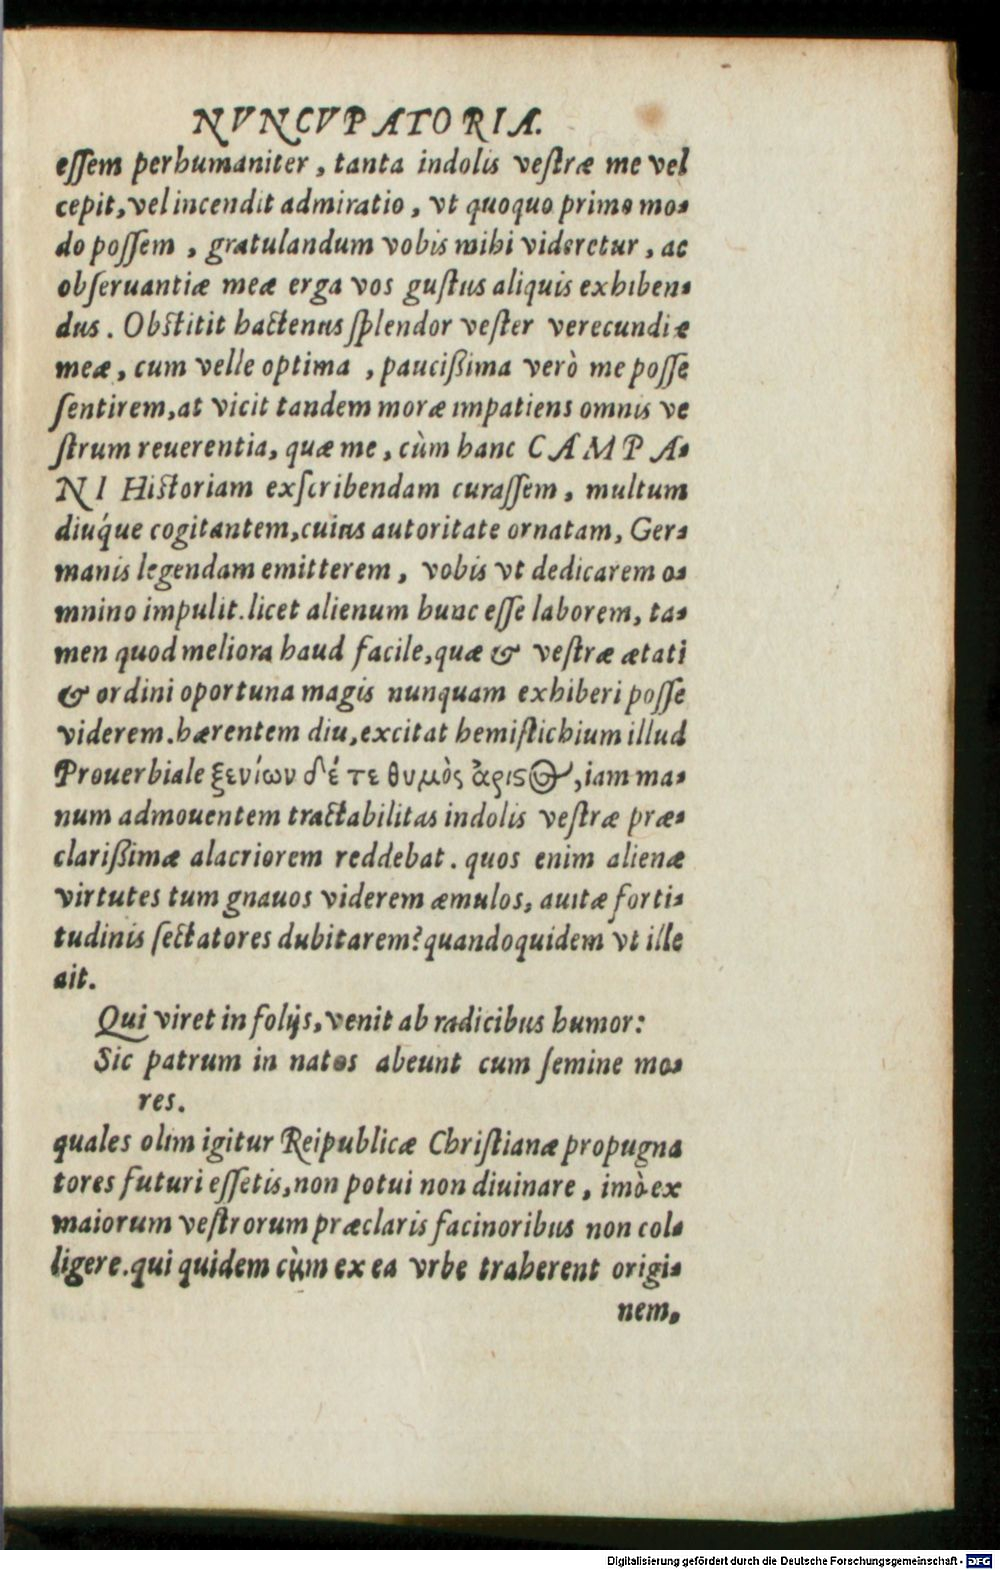 NVNCVPATORIA.
essem perhumaniter, tanta indolis vestræ me vel
cepit, vel incendit admiratio, vt quoquo primo mo-
do possem, gratulandum vobis mihi videretur, ac
obseruantiæ meæ erga vos gustus aliquis exhiben-
dus. Obstitit hactenus splendor vester verecundiæ
meæ, cum velle optima, paucißima verò me posse
sentirem, at vicit tandem moræ impatiens omnis ve
strum reuerentia, quæ me, cùm hanc CAMPA-
NI Historiam exscribendam curassem, multum
diuq́ue cogitantem, cuius autoritate ornatam, Ger-
manis legendam emitterem, vobis vt dedicarem o-
mnino impulit. licet alienum hunc esse laborem, ta-
men quod meliora haud facile, quæ & vestræ ætati
& ordini oportuna magis nunquam exhiberi posse
viderem. hærentem diu, excitat hemistichium illud
Prouerbiale ξενίων δέ τε θυμὸς ἄριστος, iam ma-
num admouentem tractabilitas indolis vestræ præ-
clarißimæ alacriorem reddebat. quos enim alienæ
virtutes tum gnauos viderem æmulos, auitæ forti-
tudinis sectatores dubitarem? quandoquidem vt ille
ait.
Qui viret in folijs, venit ab radicibus humor:
Sic patrum in natos abeunt cum semine mo-
res.
quales olim igitur Reipublicæ Christianæ propugna
tores futuri essetis, non potui non diuinare, imò ex
maiorum vestrorum præclaris facinoribus non col-
ligere. qui quidem cùm ex ea vrbe traherent origi-
nem,
Digitalisierung gefördert durch die Deutsche Forschungsgemeinschaft - DFG